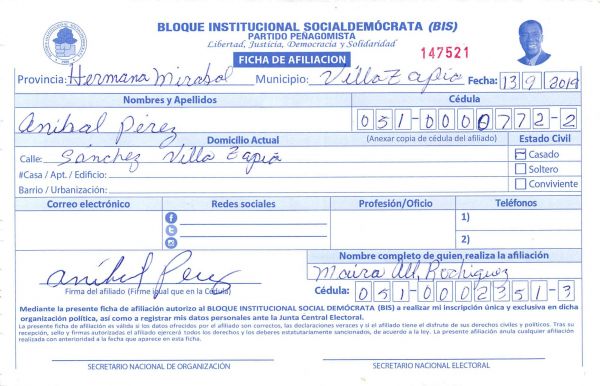 BLOQUE INSTITUCIONAL SOCIALDEMÓCRATA (BIS)
PARTIDO PEÑAGOMISTA
Libertad, Justicia, Democracia y Solidaridad
FICHA DE AFILIACION
147521
Provincia: Hermana Mirabal Municipio: Villa Tapia Fecha: 13 9 2019
Nombres y Apellidos Cédula
Aníbal Pérez 051-0000772-2
Domicilio Actual (Anexar copia de cédula del afiliado) Estado Civil
Calle: Sánchez Villa Tapia Casado
#Casa / Apt. / Edificio: Soltero
Barrio / Urbanización: Conviviente
Correo electrónico Redes sociales Profesión/Oficio Teléfonos
1)
2)
Nombre completo de quien realiza la afiliación
aníbal Perez Maira Alt. Rodriguez
Firma del afiliado (Firme igual que en la Cédula) Cédula: 051-0002351-3
Mediante la presente ficha de afiliación autorizo al BLOQUE INSTITUCIONAL SOCIAL DEMÓCRATA (BIS) a realizar mi inscripción única y exclusiva en dicha
organización política, así como a registrar mis datos personales ante la Junta Central Electoral.
La presente ficha de afiliación es válida si los datos ofrecidos por el afiliado son correctos, las declaraciones veraces y si el afiliado tiene el disfrute de sus derechos civiles y políticos. Tras su
recepción, sello y firmas autorizadas el afiliado ejercerá todos los derechos y los deberes estatutariamente sancionados, de acuerdo a la ley. La presente afiliación anula cualquier afiliación
realizada con anterioridad a la fecha que aparece en esta ficha.
SECRETARIO NACIONAL DE ORGANIZACIÓN SECRETARIO NACIONAL ELECTORAL